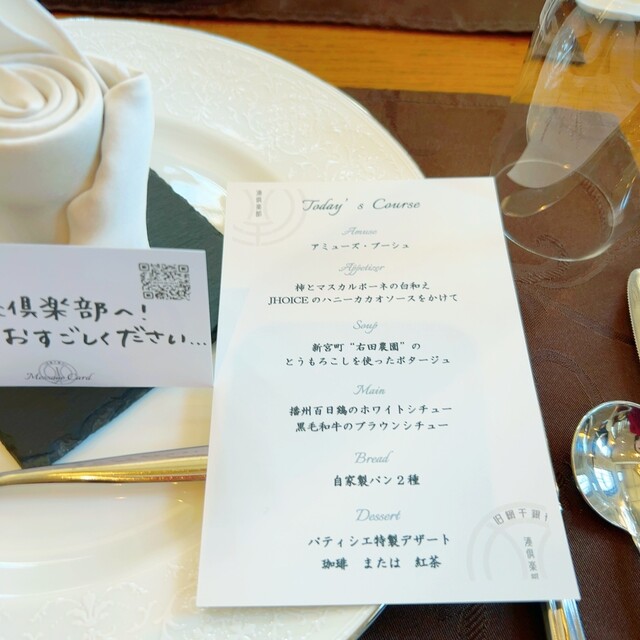 港倶楽部
Today's Course
Amuse
アミューズ・ブーシュ
Appetizer
柿とマスカルポーネの白和え
JHOICEのハニーカカオソースをかけて
Soup
新宮町“右田農園”の
とうもろこしを使ったポタージュ
Main
播州百日鶏のホワイトシチュー
黒毛和牛のブラウンシチュー
Bread
自家製パン2種
Dessert
パティシエ特製デザート
珈琲 または 紅茶
港倶楽部
倶楽部へ!
おすごしください...
Message Card